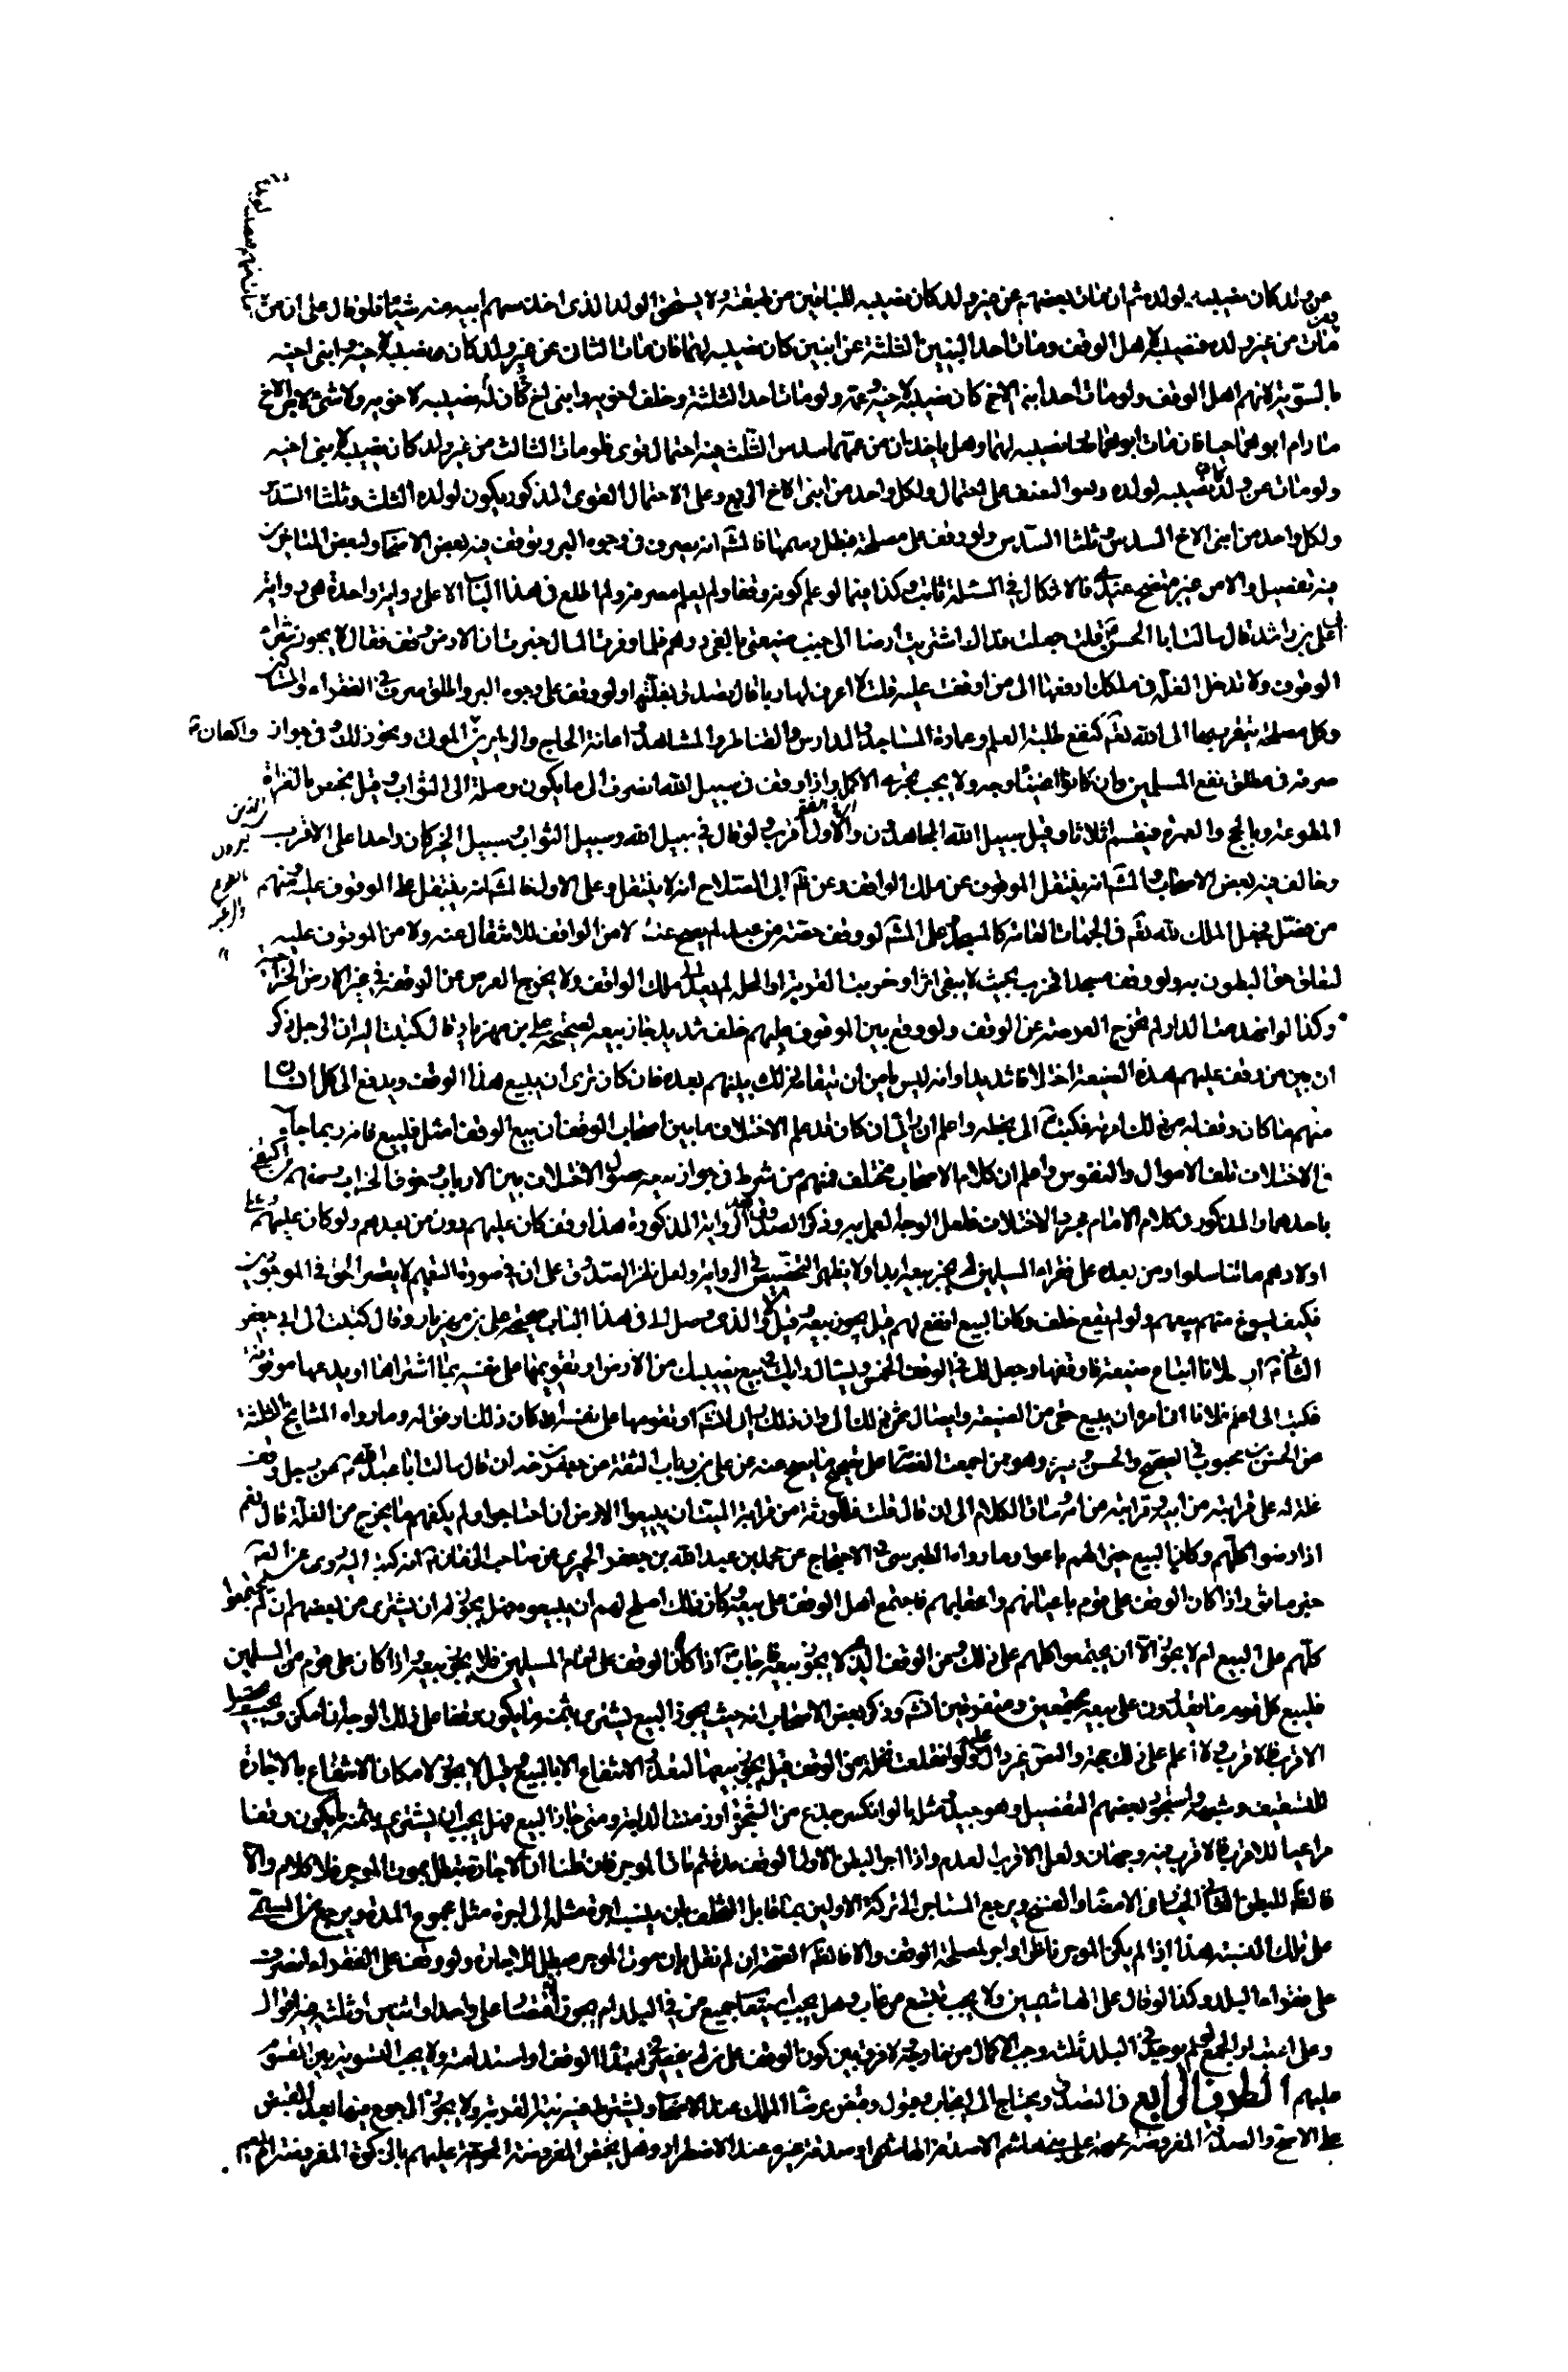 عن ولد كان نصيبه لولده ثم ان مات بعضهم عن غير ولد كان نصيبه للباقين من طبقته ولا يستحق الولد الذي اخذ سهم ابيه منه شيئا فلو قال على ان من
مات من غير ولد فنصيبه لاهل الوقف ومات احد البنين الثلثة عن ابنين كان نصيبه لهما فان مات الثانى عن غير ولد كان نصيبه لاخيه وابنى اخيه
بالسوية لانهم اهل الوقف ولو مات احد ابنى الاخ كان نصيبه لاخيه وعمه ولو مات احد الثلثة وخلف اخويه وابنى اخ كان نصيبه لاخويه ولا شئ لابنى الاخ
ما دام ابوهما حيا فان مات ابوهما اخذا نصيبه لهما وهل ياخذان من عمهما سدس الثلث فيه احتمال قوى فلو مات الثالث من غير ولد كان نصيبه لابنى اخيه
ولو مات عن ولد كان نصيبه لولده وهو النصف على احتمال ولكل واحد من ابنى الاخ الربع وعلى الاحتمال القوى المذكور يكون لولده الثلث وثلثا السدس
ولكل واحد من ابنى الاخ السدس وثلثا السدس ولو وقف على مصلحة فبطل رسمها فالمشهور انه يصرف فى وجوه البر وتوقف فيه بعض الاصحاب ولبعض المتاخرين
فيه تفصيل والامر غير متضح عندى فالاشكال فى المسئلة ثابت وكذا فيما لو علم كونه وقفا ولم يعلم مصرفه ولم اطلع فى هذا الباب الا على رواية واحدة هى رواية
على بن راشد قال سالت ابا الحسن قلت جعلت فداك اشتريت ارضا الى جنب ضيعتى بالفى درهم فلما وفرت المال خبرت ان الارض وقف فقال لا يجوز شراء
الوقوف ولا تدخل الغلة فى ملكك ادفعها الى من اوقفت عليه قلت لا اعرف لها ربا قال تصدق بغلتها ولو وقف على وجوه البر واطلق صرف فى الفقراء والمساكين
وكل مصلحة يتقرب بها الى الله تعالى كنفع طلبة العلم وعمارة المساجد والمدارس والقناطر والمشاهد واعانة الحاج والزايرين واكفان الموتى ونحو ذلك وفى جواز
صرفه فى مطلق نفع المسلمين وان كانوا اغنياء وجه ولا يجب تحرى الاكمل واذا وقف فى سبيل الله انصرف الى ما يكون وصلة الى الثواب وقيل يختص بالغزاة
المطوعة وبالحج والعمرة فيقسم اثلاثا وقيل سبيل الله المجاهدون والاول اقرب ولو قال فى سبيل الله وسبيل الثواب وسبيل الخير كان واحدا على الاقرب
وخالف فيه بعض الاصحاب والمشهور انه ينتقل الموقوف عن ملك الواقف وعن ابى الصلاح انه لا ينتقل وعلى الاول فالمشهور انه ينتقل الى الموقوف عليه ومنهم
من فصل فجعل الملك لله تعالى فى الجهات العامة كالمسجد وعلى المشهور لو وقف حصته من عبد لم يصح عتقه لا من الواقف للانتقال عنه ولا من الموقوف عليه
لتعلق حق البطون به ولو وقف مسجدا فخرب بحيث لا يبقى اثر او خربت القرية او المحلة لم يعد الى ملك الواقف ولا يخرج العرصة عن الوقف فى غير الارض الخراجية
وكذا لو انهدمت الدار لم تخرج العرصة عن الوقف ولو وقع بين الموقوف عليهم خلف شديد جاز بيعه لصحيحة على بن مهزيار قال كتبت اليه ان الرجل ذكر
ان بين من وقف عليهم هذه الضيعة اختلافا شديدا وانه ليس يامن ان يتفاقم ذلك بينهم بعده فان كان ترى ان يبيع هذا الوقف ويدفع الى كل انسان
منهم ما كان وقف له من ذلك امرته فكتب الى بخطه واعلمه ان رايى ان كان قد علم الاختلاف ما بين اصحاب الوقف ان بيع الوقف امثل فليبيع فانه ربما جاء
فى الاختلاف تلف الاموال والنفوس واعلم ان كلام الاصحاب مختلف فمنهم من شرط فى جواز بيعه حصول الاختلاف بين الارباب وخوف الخراب ومنهم من اكتفى
باحدهما والمذكور فى كلام الامام مجرد الاختلاف فلعل الوجه العمل به وذكر الصدوق بعد الرواية المذكورة هذا وقف كان عليهم دون من بعدهم ولو كان عليهم وعلى
اولادهم ما تناسلوا ومن بعد على فقراء المسلمين لم يجز بيعه ابدا ولا يظهر التخصيص فى الرواية ولعل نظر الصدوق على ان فى صورة التعميم لا ينحصر الحق فى الموجودين
فكيف يسوغ منهم بيعهم ولو لم يقع خلف وكان البيع انفع لهم قيل يجوز بيعه وقيل لا والذى وصل الى فى هذا الباب صحيحة على بن مهزيار وقال كتبت الى ابى جعفر
الثانى ان فلانا ابتاع ضيعة فاوقفها وجعل لك فى الوقف الخمس ويسال عن رايك فى بيع نصيبك من الارض او تقويمها على نفسه بما اشتراها او يدعها موقوفة
فكتب الى اعلم فلانا انى امره ان يبيع حقى من الضيعة وايصال ثمن ذلك الى وان ذلك رايى ان شاء الله او تقومها على نفسه ان كان ذلك اوفق له وما رواه المشايخ الثلثة
عن الحسن بن محبوب فى الصحيح والحسن وغيره وهو ممن اجمعت العصابة على تصحيح ما يصح عنه عن على بن رياب الثقة عن جعفر بن حيان قال سالت ابا عبد الله عن رجل وقف
غلة له على قرابته من ابيه وقرابته من امه وساق الكلام الى ان قال قلت فللورثة من قرابة الميت ان يبيعوا الارض ان احتاجوا ولم يكفهم ما يخرج من الغلة قال نعم
اذا رضوا كلهم وكان البيع خيرا لهم باعوا وما رواه الطبرسى فى الاحتجاج عن محمد بن عبد الله بن جعفر الحميرى عن صاحب الزمان انه كتب اليه روى عن الصادق
خبر ماثور اذا كان الوقف على قوم باعيانهم واعقابهم فاجتمع اهل الوقف على بيعه وكان ذلك اصلح لهم ان يبيعوه فهل يجوز ان يشترى من بعضهم ان لم يجتمعوا
كلهم على البيع ام لا يجوز الا ان يجتمعوا كلهم على ذلك وعن الوقف الذى لا يجوز بيعه فاجاب اذا كان الوقف على امام المسلمين فلا يجوز بيعه واذا كان على قوم من المسلمين
فليبع كل قوم ما يقدرون على بيعه مجتمعين ومتفرقين ان شاء الله وذكر بعض الاصحاب انه حيث يجوز البيع يشترى بثمنه ما يكون وقفا على ذلك الوجه ان امكن
الاقرب فالاقرب ولا اعلم على ذلك حجة والنص غير دال عليه ولو انقلعت نخلة من الوقف قيل يجوز بيعها لتعذر الانتفاع الا بالبيع وقيل لا يجوز لامكان الانتفاع بالاجارة
للتسقيف وشبهه واستجود بعضهم التفصيل وهو جيد ومثله ما لو انكسر جذع من الشجرة او زمنت الدابة ومتى جاز البيع فهل يجب ان يشترى بثمنه ما يكون وقفا
مراعيا للاقرب فالاقرب فيه وجهان ولعل الاقرب العدم واذا اجر البطن الاول الوقف مدة ثم مات الموجر فان قلنا ان الاجارة تبطل بموت الموجر فلا كلام والا
فالظاهر للبطن الثانى الخيار فى الامضاء والفسخ ويرجع المستاجر الى تركة الاولين بما قابل المتخلف بان ينسب اجرة مثله الى اجرة مثل مجموع المدة ويرجع من المسمى
على تلك النسبة هذا اذا لم يكن الموجر ناظرا او اجر لمصلحة الوقف والا فالظاهر الصحة ان لم نقل بان موت الموجر مبطل للاجارة ولو وقف على الفقراء انصرف
على فقراء البلد وكذا لو قال على الهاشميين ولا يجب تتبع من غاب وهل يجب استيعاب جميع من فى البلد ام يجوز الاقتصار على واحد او اثنين او ثلثة فيه اقوال
وعلى اعتبار الجمع لو لم يوجد فى البلد ثلثة وجب الاكمال من خارجه ولا فرق بين كون الوقف على من لم ينحصر فى ابتداء الوقف او استدامته ولا يجب التسوية بين المقسوم
عليهم الطرف الرابع فى الصدقة ويحتاج الى ايجاب وقبول وقبض برضا المالك عند الاصحاب ويشترط فيه نية القربة ولا يجوز الرجوع فيها بعد القبض
على الاصح والصدقة المفروضة محرمة على بنى هاشم الا صدقة الهاشمى او صدقة غيره عند الاضطرار وهل يختص المفروضة المحرمة عليهم بالزكوة المفروضة